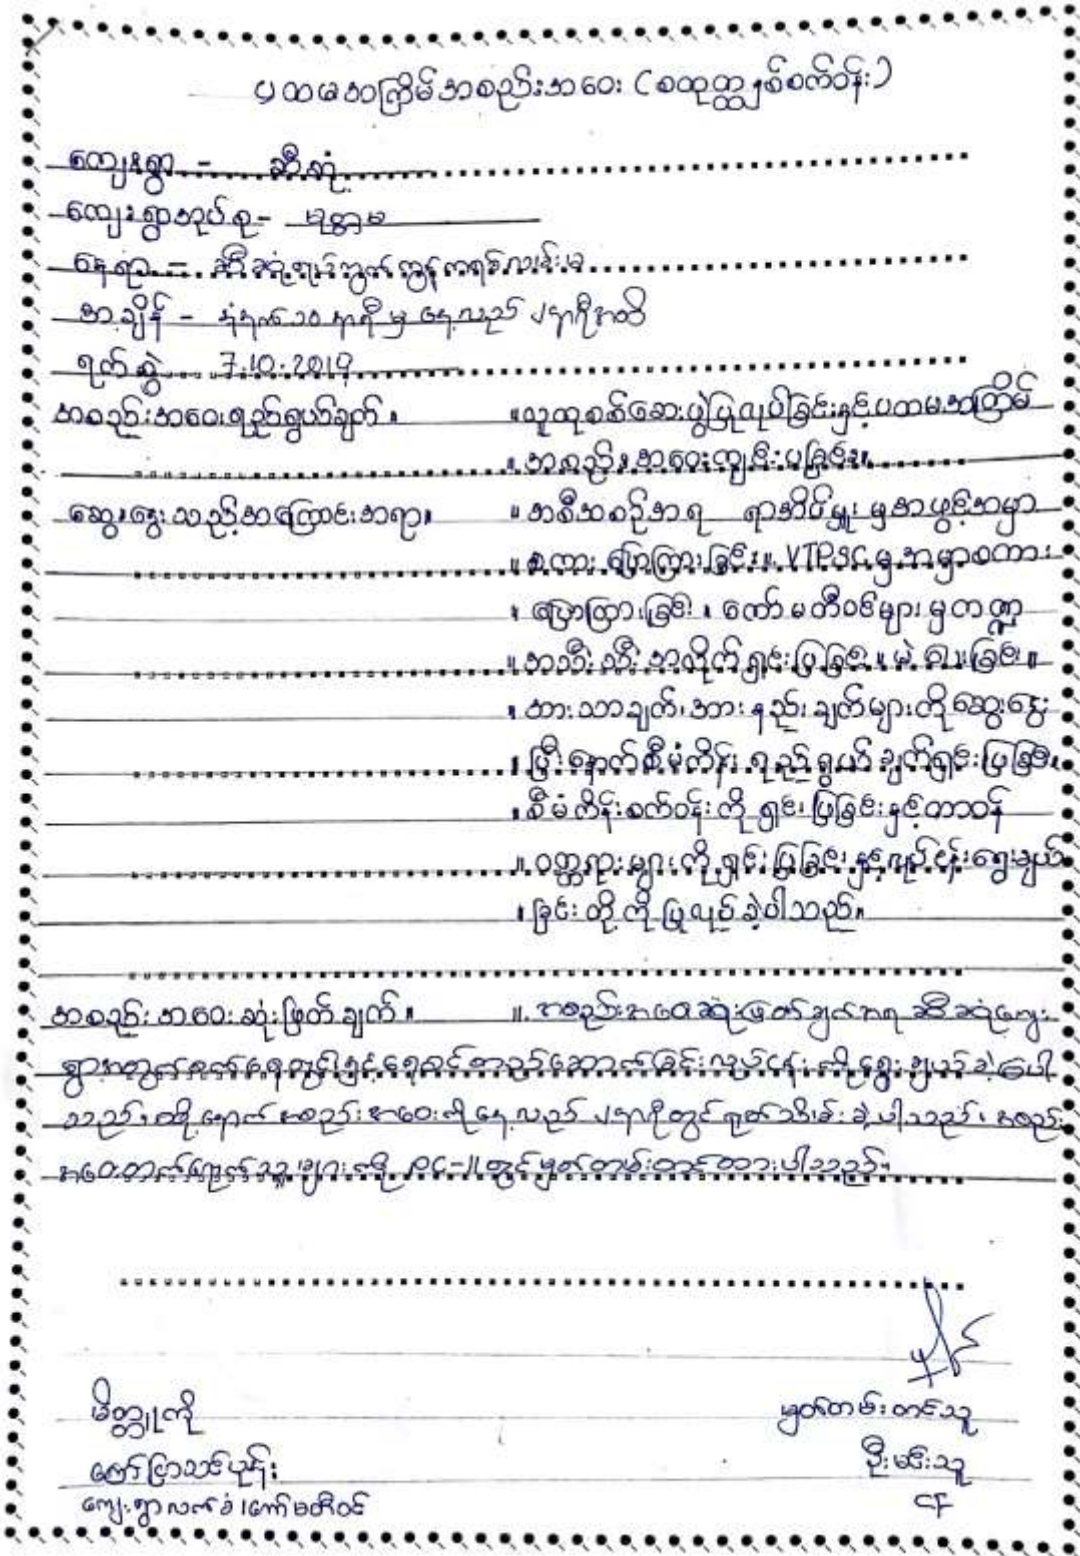 ပထမအကြိမ်အစည်းအဝေး (စတုတ္ထနှစ်စက်ဝန်း)
ကျေးရွာ - ဆီဆုံ
ကျေးရွာအုပ်စု - မုတ္တမ
နေရာ - ဆီဆုံရယ်ဘွတ်ကွန်ကရစ်လမ်းမ
အချိန် - နံနက် ၁၀ နာရီမှ နေ့လည် ၂ နာရီအထိ
ရက်စွဲ 7.10.2019
အစည်းအဝေးရည်ရွယ်ချက် ။ ။ လူထုစစ်ဆေးပွဲပြုလုပ်ခြင်းနှင့်ပထမအကြိမ်
။ အစည်းအဝေးကျင်းပခြင်း။
ဆွေးနွေးသည့်အကြောင်းအရာ။ ။ အစီအစဉ်အရ ရာအိပ်မှူးမှအဖွင့်အမှာ
။ စကားပြောကြားခြင်း။ VTPSC မှ အမှာစကား
။ ပြောကြားခြင်း ၊ ကော်မတီဝင်များမှကဏ္ဍ
။ အသီးသီးအလိုက်ရှင်းပြခြင်း။ မဲခေါ်ခြင်း။
။ အားသာချက်၊ အားနည်းချက်များကိုဆွေးနွေး
။ ပြီးနောက်စီမံကိန်းရည်ရွယ်ချက်ရှင်းပြခြင်း
။ စီမံကိန်းစက်ဝန်းကိုရှင်းပြခြင်းနှင့်တာဝန်
။ ဝတ္တရားများကိုရှင်းပြခြင်းနှင့်လုပ်ငန်းရွေးချယ်
။ ခြင်းတို့ကိုပြုလုပ်ခဲ့ပါသည်။
အစည်းအဝေးဆုံးဖြတ်ချက် ။ ။ အစည်းအဝေးဆုံးဖြတ်ချက်အရ ဆီဆုံကျေး
ရွာအတွက်စက်ရေတွင်းနှင့်ရေစင်တည်ဆောက်ခြင်းလုပ်ငန်းကိုရွေးချယ်ခဲ့ပေါ
သည်၊ ထို့နောက် အစည်းအဝေးကိုနေ့လည် ၂ နာရီတွင်ရုတ်သိမ်းခဲ့ပါသည်၊ အစည်း
အဝေးတက်ရောက်သူများကို PC-11 တွင်မှတ်တမ်းတင်ထားပါသည်။
မိတ္တူကို မှတ်တမ်းတင်သူ
ဦးမင်းသူ
ကျေးရွာလက်ခံ၊ကော်မတီဝင် CF